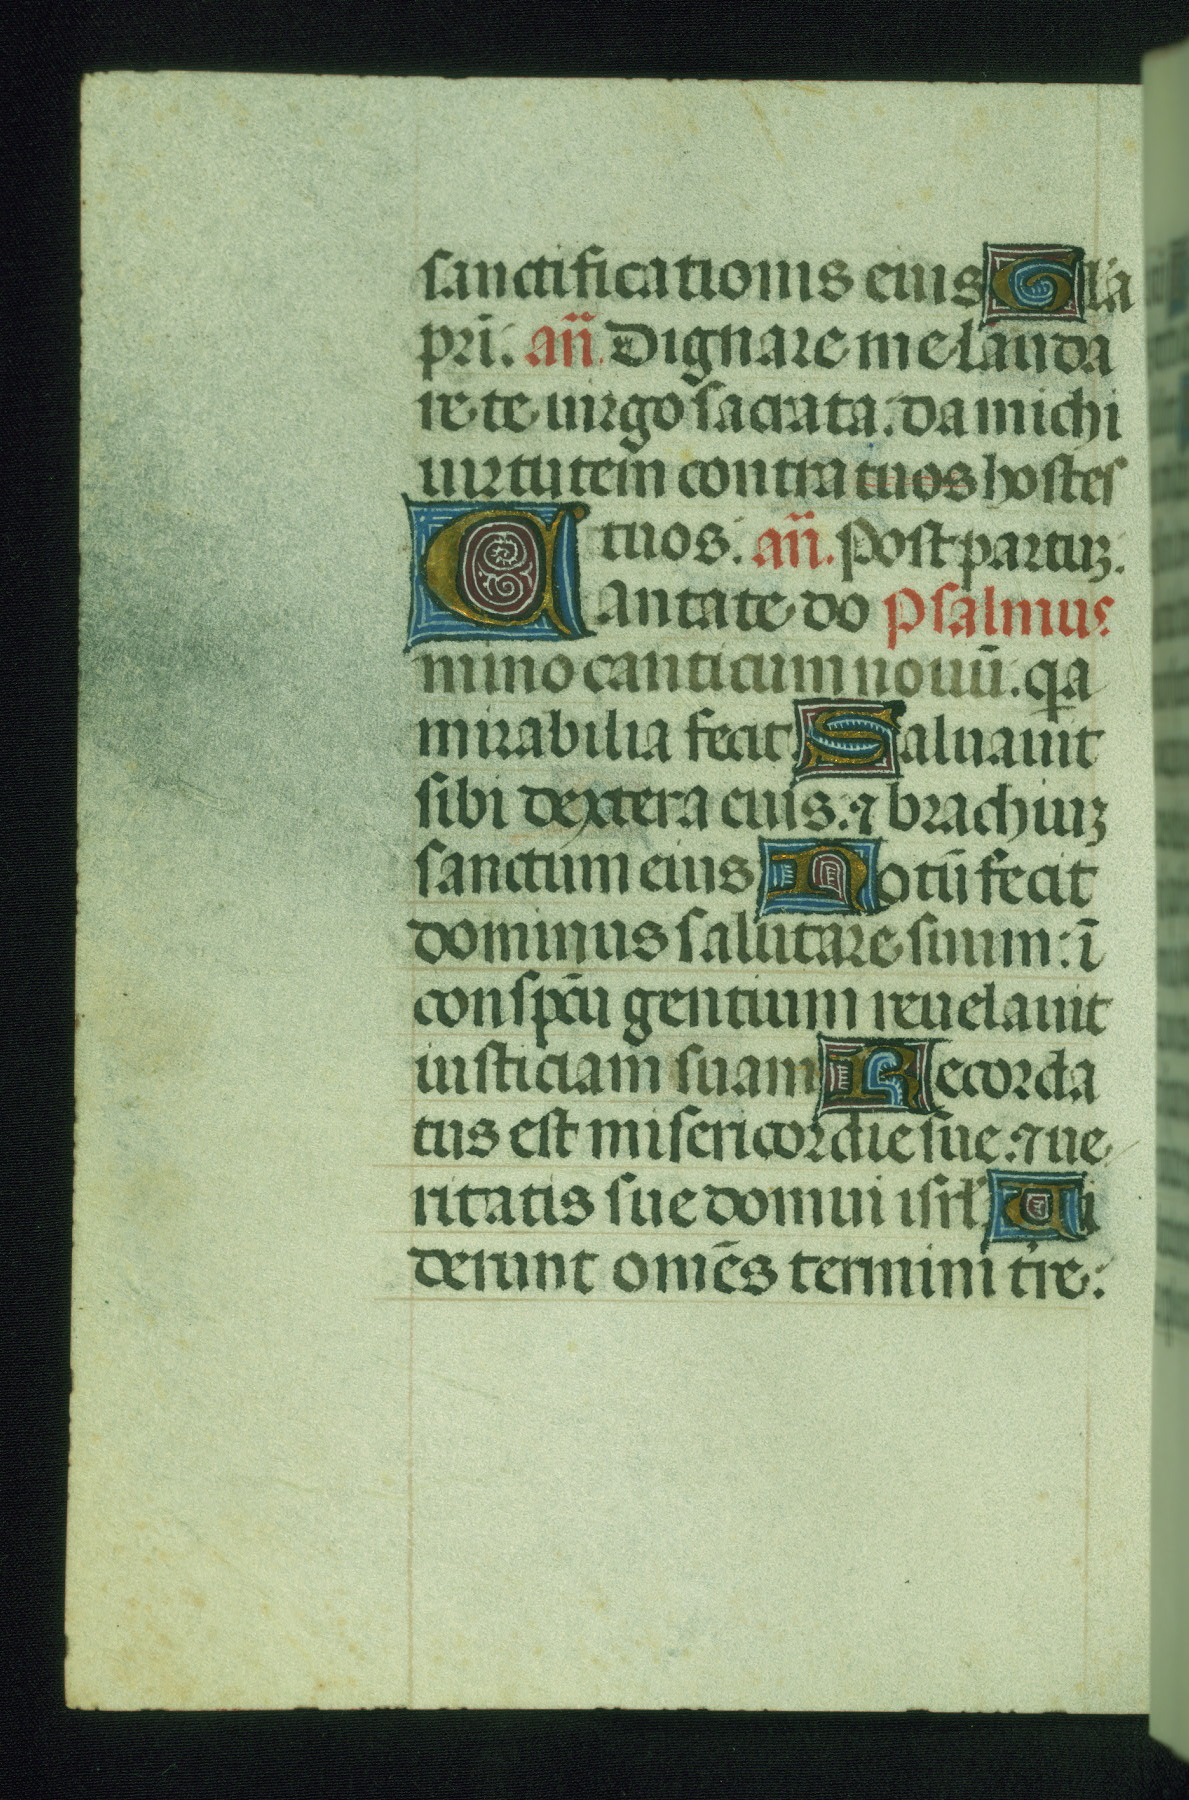 sanctificationis eius Gl'a
pri̅. an̅. Dignare me lauda
re te uirgo sacrata. da michi
uirtutem contra tuos hostes
tuos. an̅. Post partuꝫ.
Cantate do Psalmus
mino canticum nouū. qa
mirabilia fecit Saluauit
sibi dextera eius. ⁊ brachiuꝫ
sanctum eius Notū fecit
dominus salutare suum: ī
conspc̄u gentium reuelauit
iusticiam suam Recorda
tus est misericordie sue. ⁊ ue
ritatis sue domui isrl' Ui
derunt omēs termini t're.